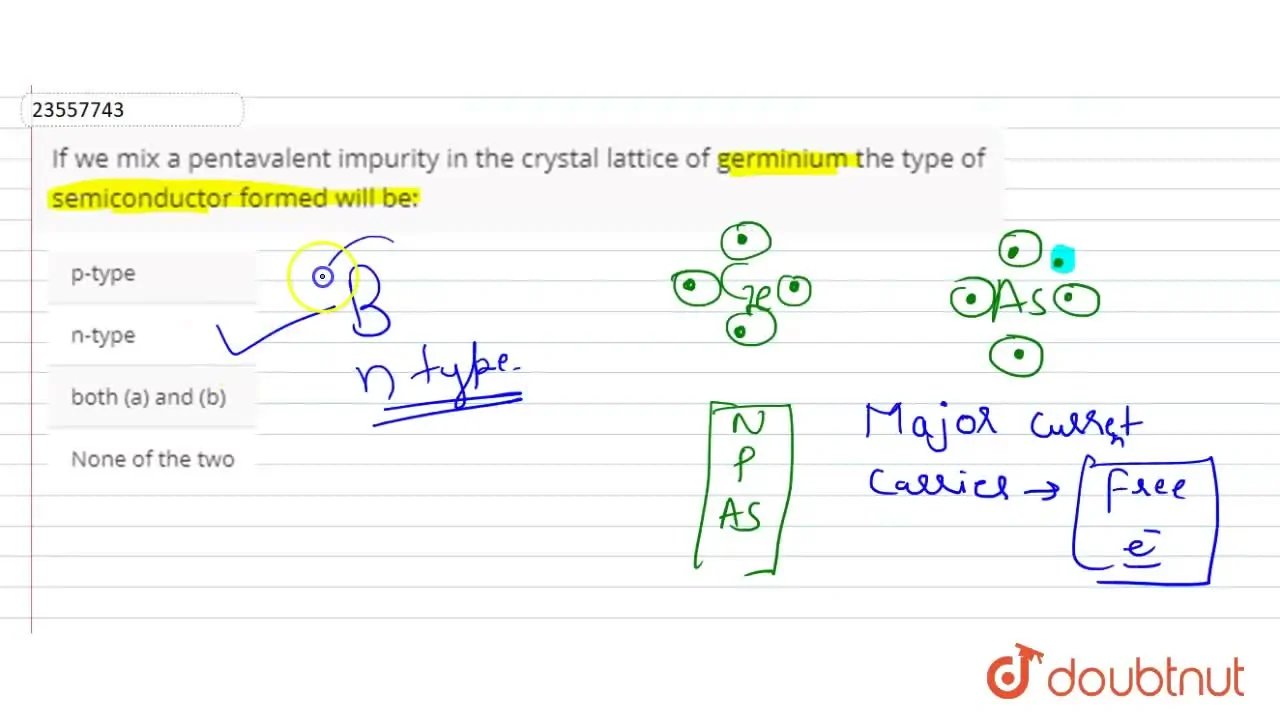 23557743
If we mix a pentavalent impurity in the crystal lattice of germinium the type of
semiconductor formed will be:
p-type
n-type
both (a) and (b)
None of the two
B
n type.
Ge
As
N
P
As
Major current
carrier → Free
e⁻
doubtnut